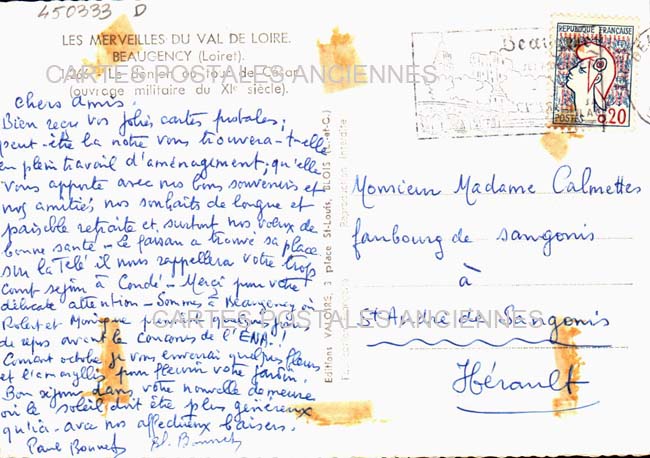 450333 D
LES MERVEILLES DU VAL DE LOIRE.
BEAUGENCY (Loiret).
(ouvrage militaire du XIe siècle).
CARTES POSTALES ANCIENNES
REPUBLIQUE FRANÇAISE
POSTES 0,20
chers amis.
Bien reçu vos jolies cartes postales;
peut-être la notre vous trouvera-t-elle
en plein travail d'aménagement; qu'elle
vous apporte avec nos bons souvenirs et
nos amitiés, nos souhaits de longue et
paisible retraite et surtout nos vœux de
bonne santé - Le faisan a trouvé sa place
sur la Télé il nous rappellera votre trop
court séjour à Condé - Merci pour votre
délicate attention - Sommes à Beaugency où
Robert et Monique
de repos avant le Concours de l'ENA!
Courant octobre je vous enverrai quelques fleurs
et l'amaryllis pour fleurir votre jardin.
Bon séjour dans votre nouvelle demeure
où le soleil doit être plus généreux
qu'ici. avec nos affectueux baisers.
Paul Bonnet
Editions VALOIRE, 3 place St-Louis, BLOIS (L.-et-C.)
Reproduction interdite
Monsieur Madame Calmettes
faubourg de sangonis
à
St André de Sangonis
Hérault
CARTES POSTALES ANCIENNES